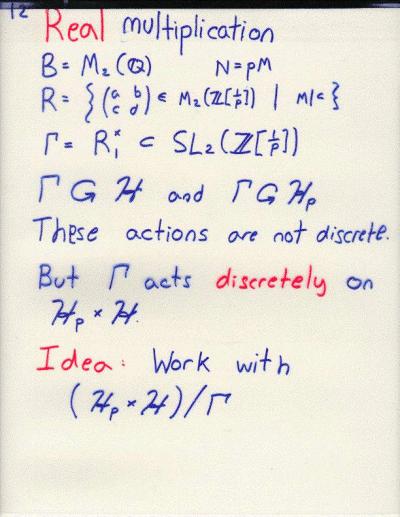 12
Real multiplication
B = M₂(ℚ) N = pM
R = {(a b c d) ∈ M₂(ℤ[1/p]) | M|c}
Γ = R₁ˣ ⊂ SL₂(ℤ[1/p])
Γ G ℋ and Γ G ℋₚ
These actions are not discrete.
But Γ acts discretely on
ℋₚ × ℋ.
Idea: Work with
(ℋₚ × ℋ)/Γ